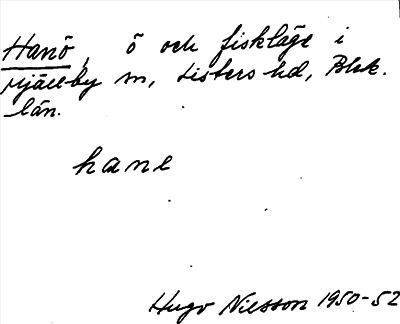 Hanö, ö och fiskläge i
Mjällby sn, Listers hd, Blek.
län.
hane
Hugo Nilsson 1950-52